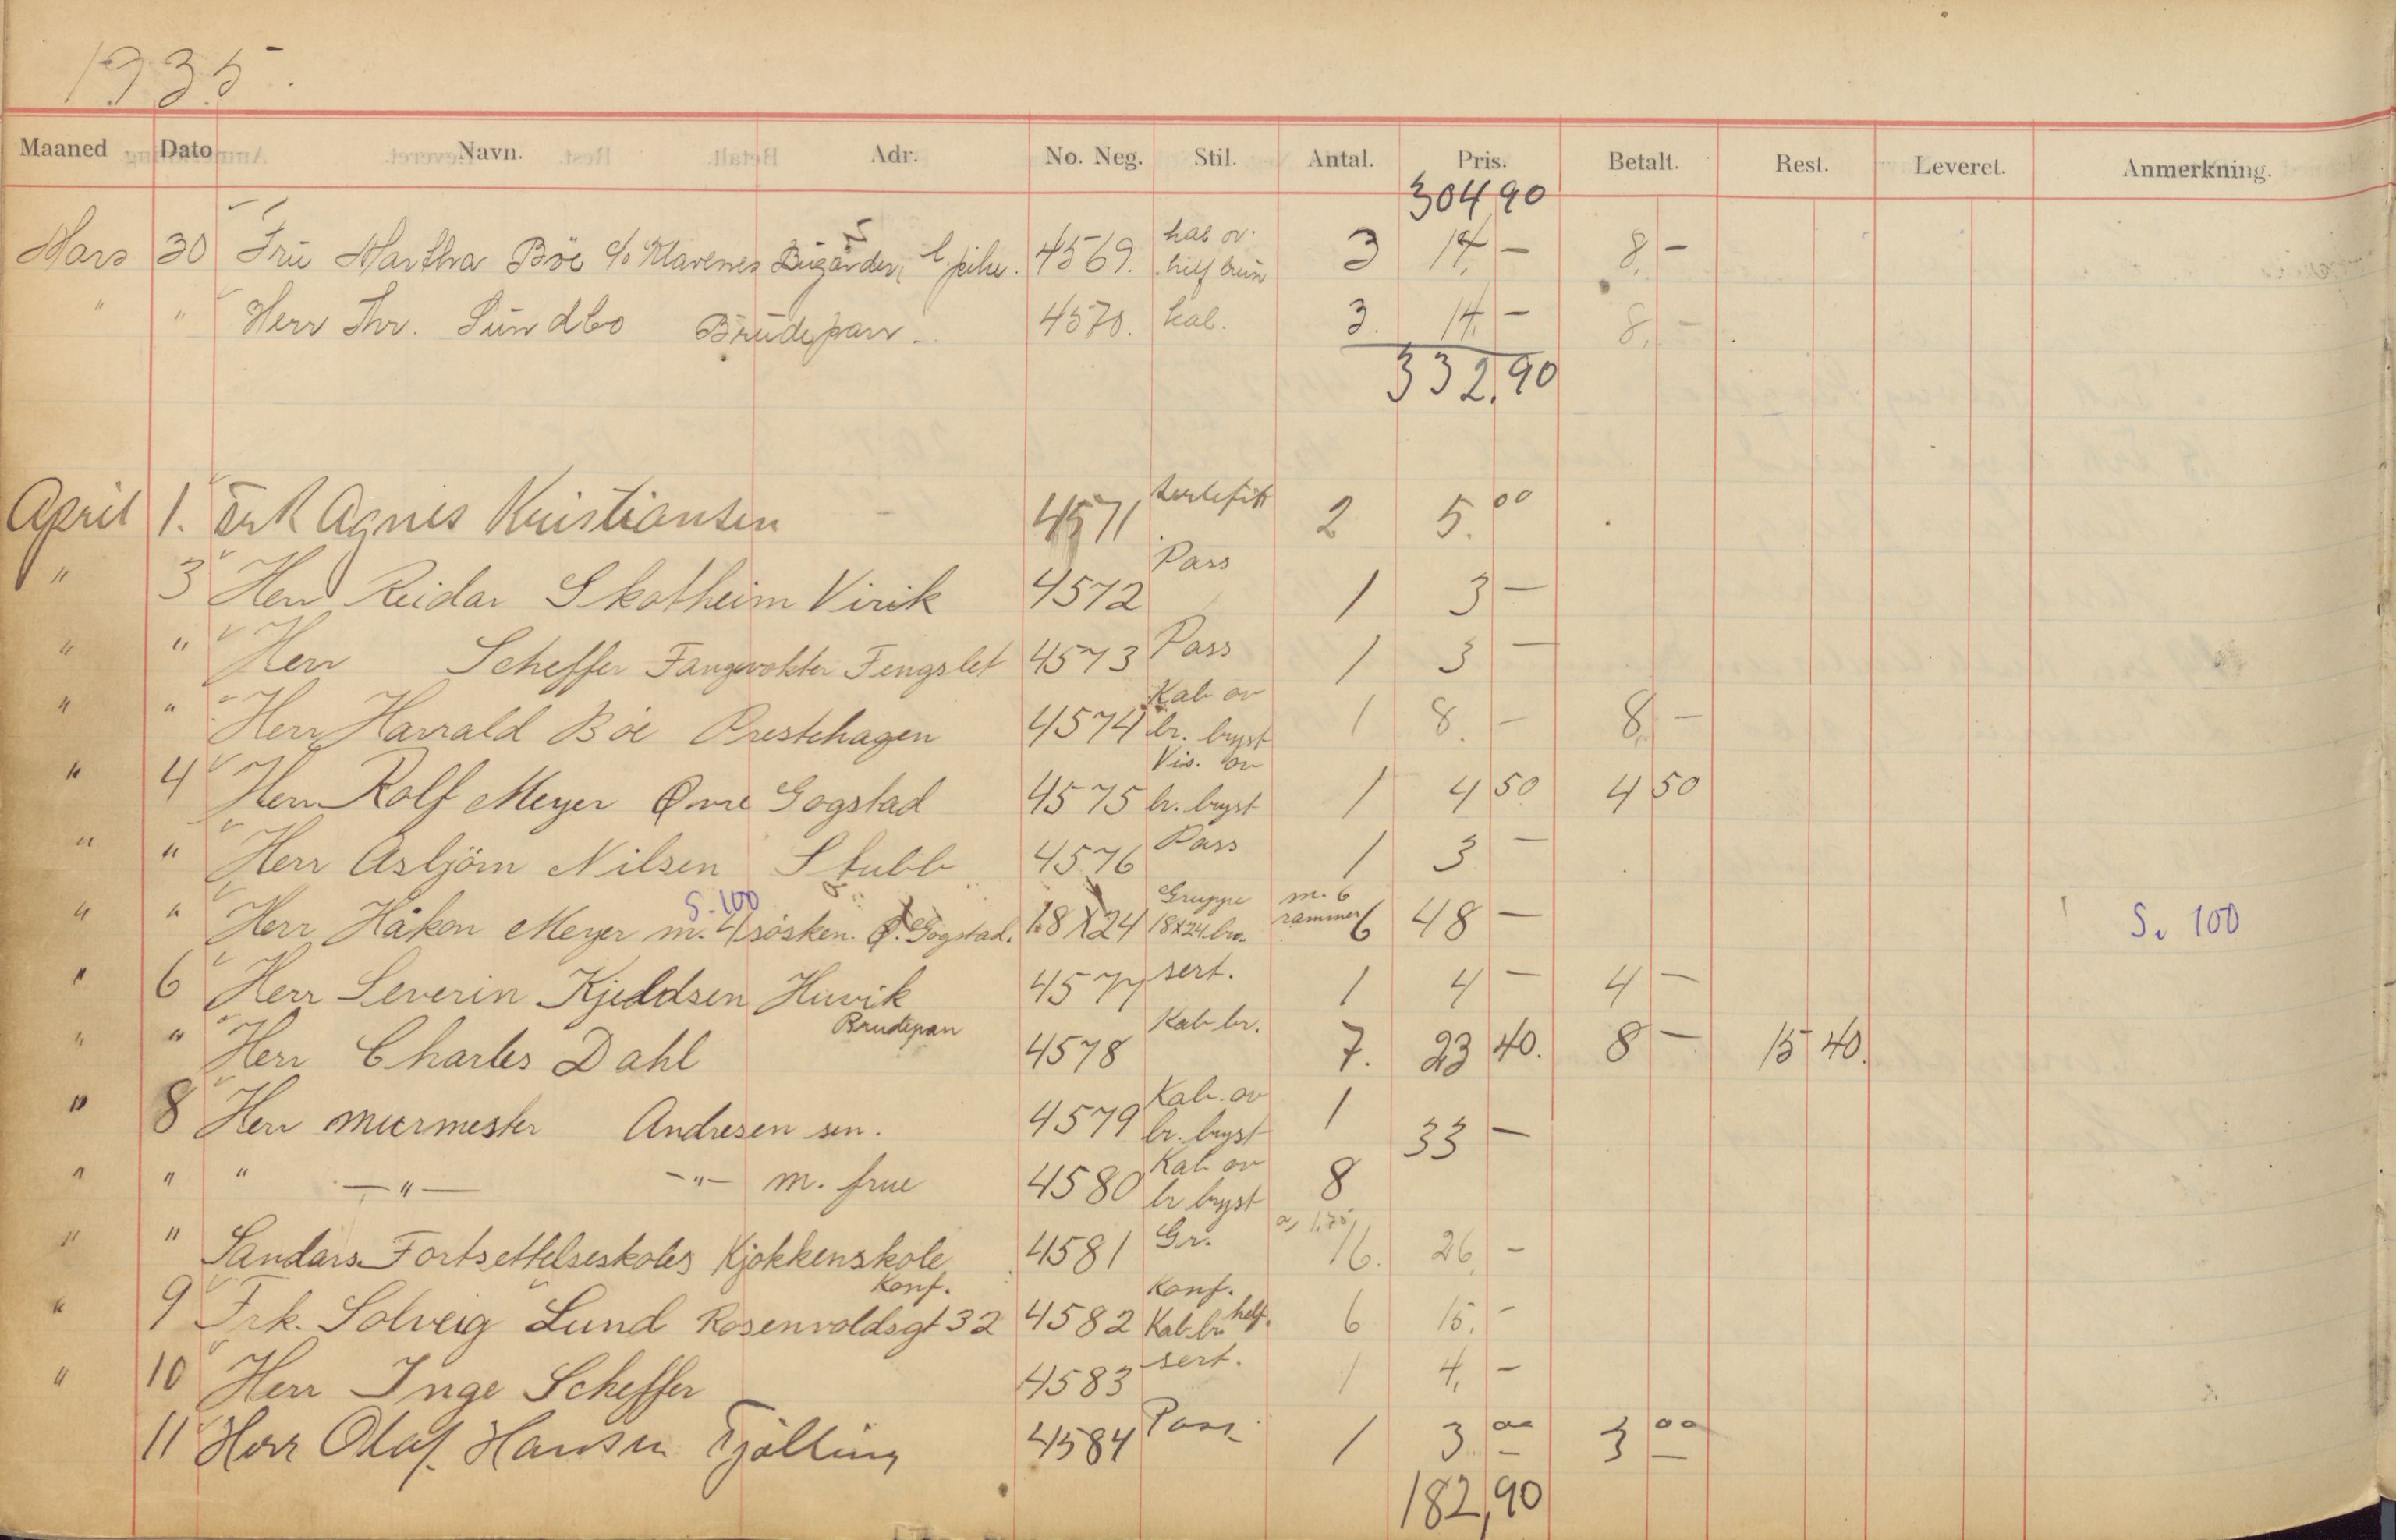 1935.
Maaned Dato Navn. Adr. No. Neg. Stil. Antal. Pris. Betalt. Rest. Leveret. Anmerkning.
304,90
Mars 30 Frü Martha Böe c/o Klavenes 4569. kab ov. 3 14,- 8,-
" " Herr Thr. Sündbo Brüdepar. 4570. kab. 3. 14,- 8,-
332,90
April 1. Frk Agnes Kristiansen 4571 2 5.00
" 3 Herr Reidar Skotheim Virik 4572 Pass 1 3 -
" " Herr Scheffer Fangevokter Fengslet 4573 Pass 1 3 -
" " Herr Harald Böe Prestehagen 4574 Kab ov br. bryst 1 8. - 8, -
" 4 Herr Rolf Meyer Övre Gogstad 4575 Vis. ov br. bryst 1 4 50 4 50
" " Herr Asbjörn Nilsen Stubb 4576 Pass 1 3 -
" " Herr Håkon Meyer m. 4 søsken. Ø. Gogstad. S. 100 18X24 Gruppe 18X24 br. m. 6 rammer 6 48 - S. 100
" 6 Herr Severin Kjeldsen Huvik 4577 sert. 1 4 - 4 -
" " Herr Charles Dahl Brudepar 4578 Kab br. 7. 23 40. 8 - 15 40.
" 8 Herr murmester Andresen sen. 4579 Kab. ov br. bryst 1 33 -
" " " -"- -"- m. frue 4580 Kab ov br bryst 8
" " Sandars Fortsettelseskoles Kjøkkenskole 4581 Gr. a, 1,75, 16. 26, -
" 9 Frk. Solveig Lund Konf. Rosenvoldsgt 32 4582 Konf. Kab. br helf. 6 15, -
" 10 Herr Inge Scheffer 4583 sert. 1 4, -
11 Herr Olaf Hansen Tjølling 4584 Pass 1 3 00 3 00
182,90